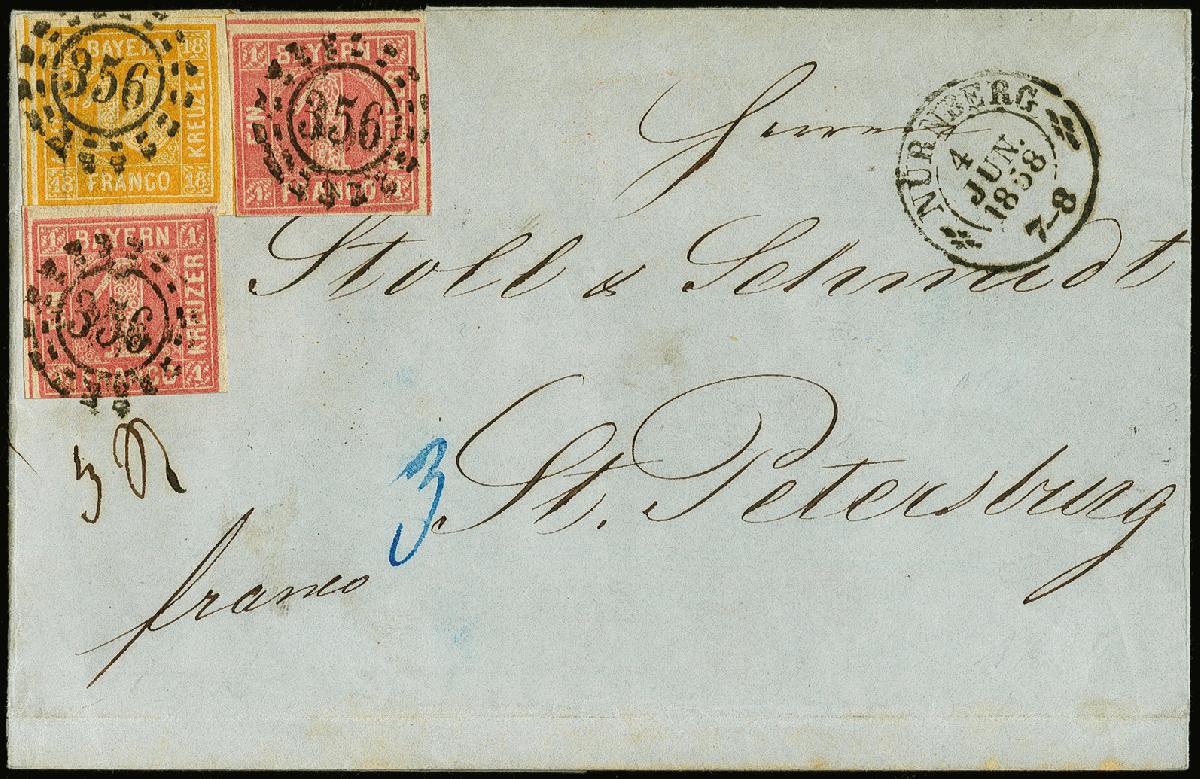 BAYERN
18 18
KREUZER
18 FRANCO 18
356
1 BAYERN 1
1 FRANCO 1
356
BAYERN 1
KREUZER
FRANCO 1
356
NÜRNBERG
4
JUN.
1858
7-8
Herren
Stoll & Schmidt
St. Petersburg
3
franco